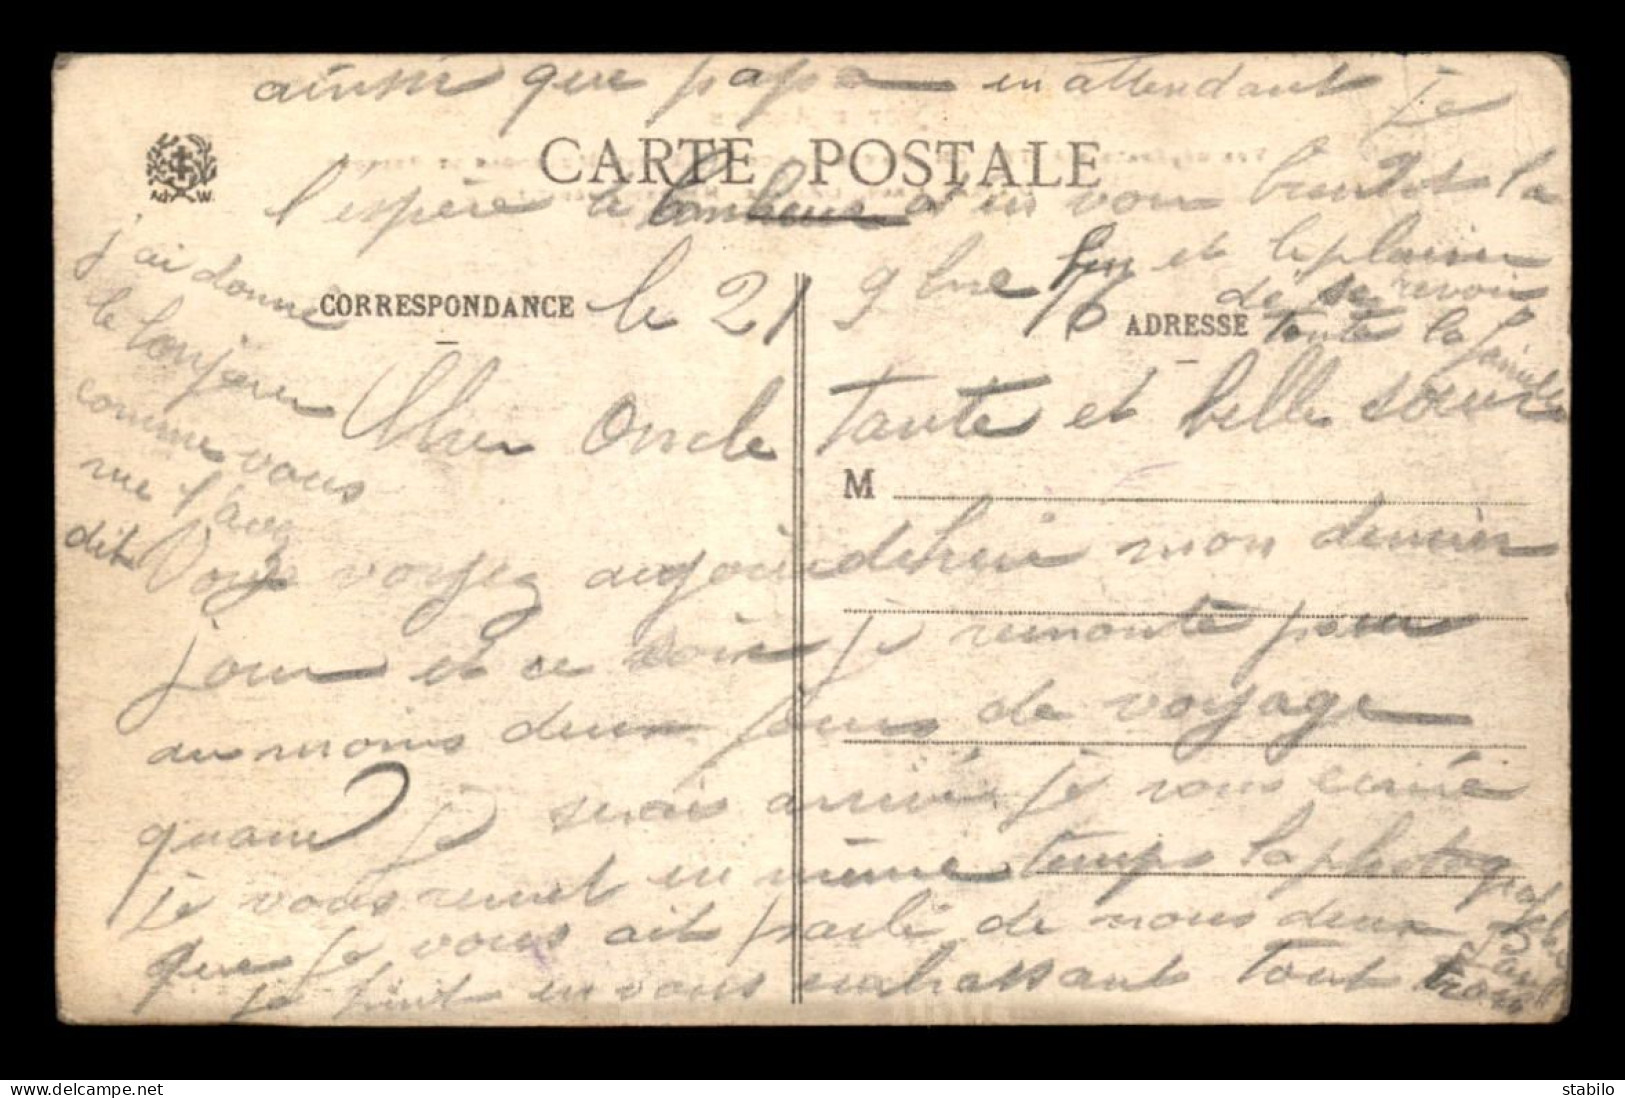 ainsi que papa en attendant je
CARTE POSTALE
l'espère le bonheur et en vous bientôt la
fin et le plaisir
de se revoir
toute la famille
j'ai donné
le bonjour
comme vous
me l'avez
dit
CORRESPONDANCE
le 21 9bre 16
ADRESSE
Cher Oncle Tante et belle soeur
M
Vous voyez aujourdehui mon dernier
jour et ce soir je remonte pour
au moins deux jours de voyage
quand je serais arrivé je vous écriré
je vous remet en même temps la photographie
que je vous ait parlé de nous deux
je finit en vous embrassant tout trois
Ad W.
stabilo